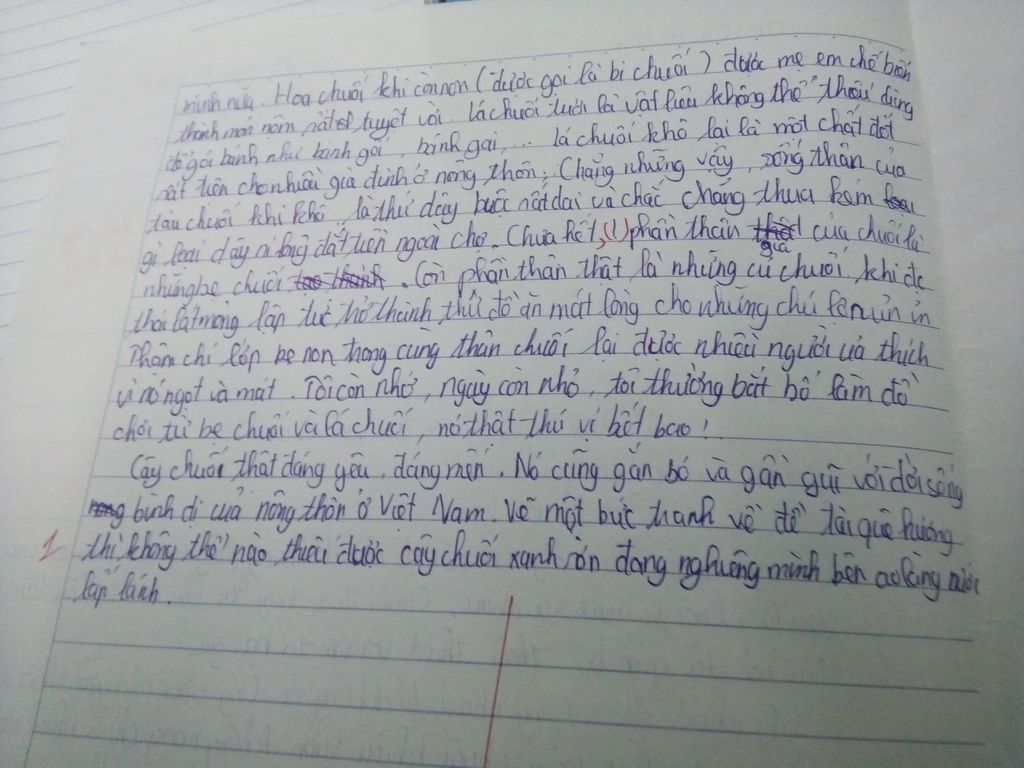 mình nữa. Hoa chuối khi còn non (được gọi là bi chuối) được mẹ em chế biến
thành món nộm rất tuyệt vời. Lá chuối tươi là vật liệu không thể thiếu dùng
để gói bánh như bánh gối, bánh gai,... lá chuối khô lại là một chất đốt
rất tiện cho nhiều gia đình ở nông thôn; Chẳng những vậy, sống thân của
tàu chuối khi khô, là thứ dây buộc rất dai và chắc chẳng thua kém
gì loại dây ni lông đắt tiền ngoài chợ. Chưa hết, (1) phần thân giả của chuối là
những bẹ chuối. Còn phần thân thật là những củ chuối, khi đc
thái lát mỏng lập tức trở thành thứ đồ ăn mát lòng cho những chú lợn ủn ỉn
Thậm chí lớp bẹ non trong cùng thân chuối lại được nhiều người ưa thích
vì nó ngọt và mát. Tôi còn nhớ, ngày còn nhỏ, tôi thường bắt bố làm đồ
chơi từ bẹ chuối và lá chuối, nó thật thú vị biết bao!
Cây chuối thật đáng yêu, đáng mến. Nó cũng gắn bó và gần gũi với đời sống
bình dị của nông thôn ở Việt Nam. Vẽ một bức tranh về đề tài quê hương
1 thì không thể nào thiếu được cây chuối xanh rờn đang nghiêng mình bên ao làng nước
lấp lánh.